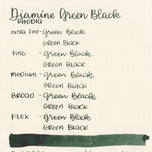 Diamine Green Black
RHODIA
extra fine - Green Black
Green Black
Fine - Green Black
Green Black
Medium - Green Black
Green Black
Broad - Green Black
Green Black
Flex - Green Black
Green Black